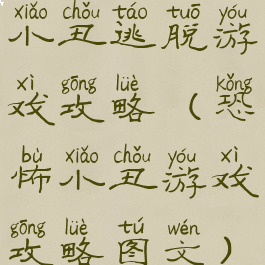 xiǎo chǒu táo tuō yóu
小丑逃脱游
xì gōng lüè kǒng
戏攻略（恐
bù xiǎo chǒu yóu xì
怖小丑游戏
gōng lüè tú wén
攻略图文）